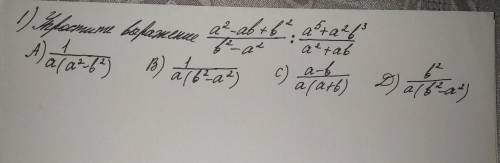 1) Упростите выражение (a² - ab + b²)/(b² - a²) : (a⁵ + a²b³)/(a² + ab)
A) 1/(a(a² - b²)) B) 1/(a(b² - a²)) C) (a - b)/(a(a + b)) D) b²/(a(b² - a²))